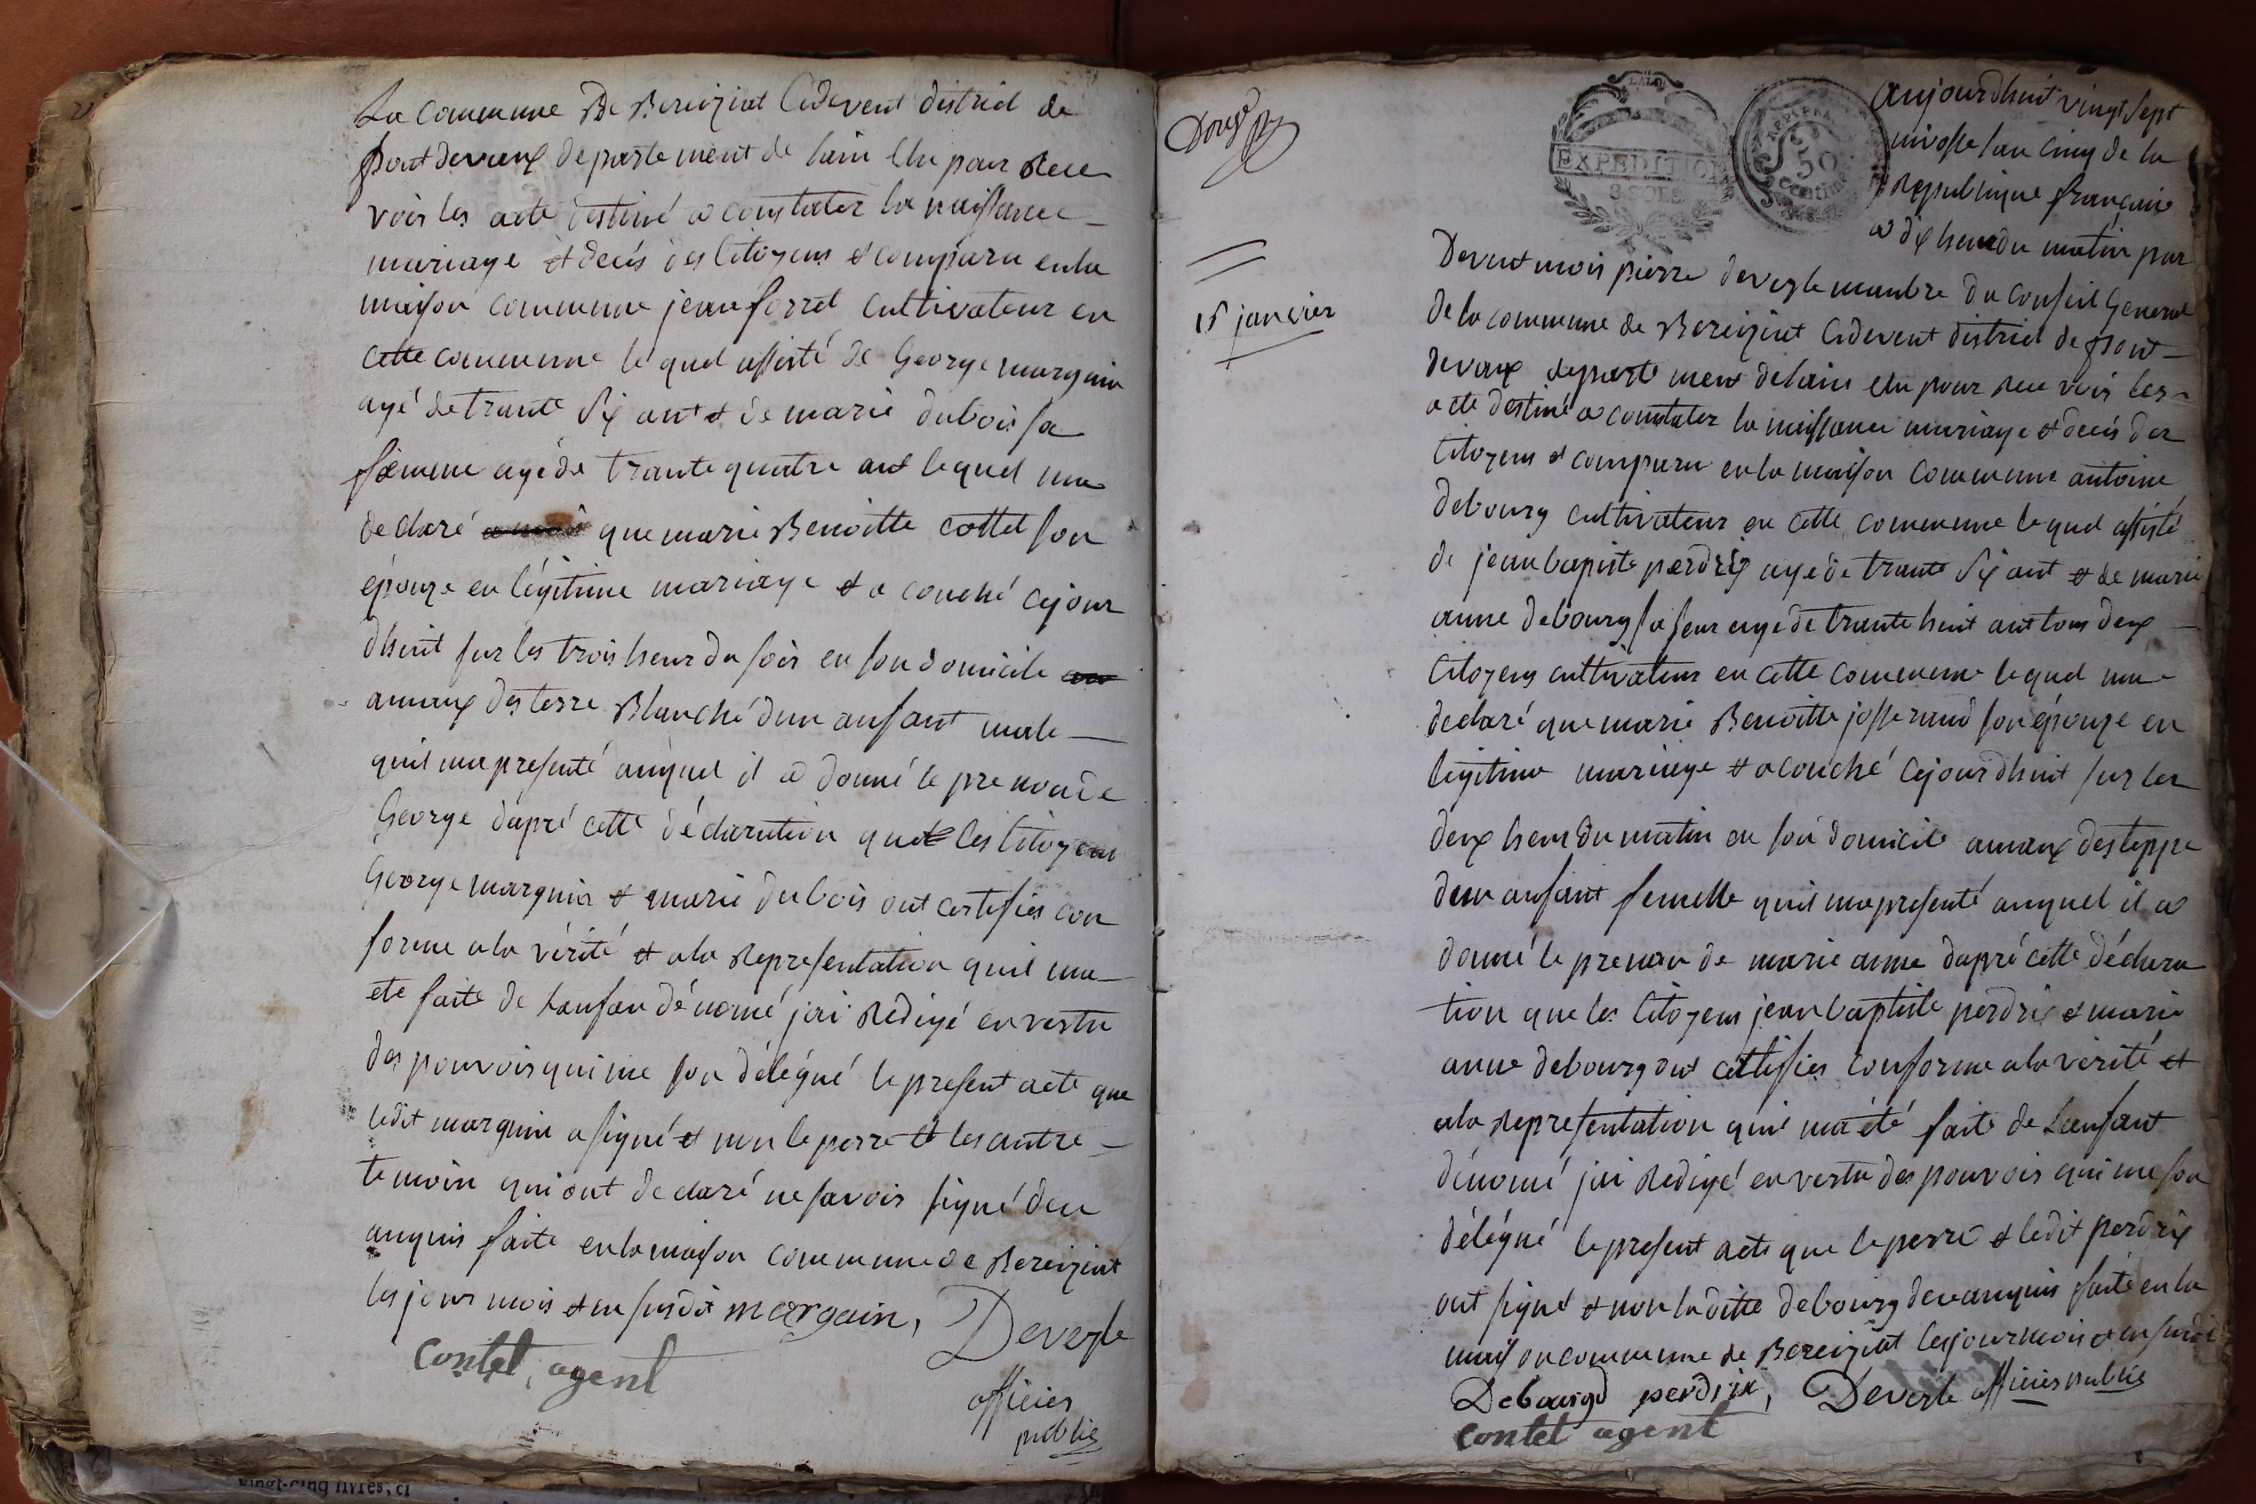 La commune De Bereiziat Cidevent district de
pontdevaux departement de lain Elu pour Rece
voir les acte destiné a constater la naissance
mariage et decés des Citoyens et comparu en la
maison commune jean forret cultivateur en
cette commune le quel assisté de George marguin
agé de trante six ant et de marie dubois sa
femme agé de trante quatre ant lequel ma
declaré que marie Benoitte cottet son
épouze en légitime mariage et a couché cejour
dhuit sur les trois heur du soir en son domicile
amaux des terre Blanche dun anfant male
quil ma presenté auquel il a donné le prenon de
George dapré cette déclaration que les Citoyens
George marguin et marie dubois ont certifies con
forme a la vérité et a la Representation quil ma
eté faite de Lanfan dénomé jai Redigé en vertu
des pouvoir qui me son délégué le present acte que
ledit marguin a signé et non le perre et les autre
temoin qui ont declaré ne savoir signé de ce
anquis faite en la maison commune de Bereiziat
les jour mois et en susdit margain, Deverle
Contet, agent
officier
public
vingt-cinq livres, ci
LA LOI
EXPEDITION
3 SOLS
50
Centimes
15 janvier
aujourdhuit vingt sept
nivosse lan cinq de la
Republique française
a dix heur du matin par
Devent mois pierre deverle manbre du conseil General
de la commune de Bereiziat Cidevent district de pont
devaux departement de lain Elu pour Rece voir les
acte destiné a constater la naissance mariage et decés des
Citoyens et comparu en la maison commune antoine
debourg cultivateur en cette commune le quel assisté
de jean bapiste perdrix agé de trante six ant et de marie
anne debourg sa seur agé de trante huit ant tous deux
Citoyens cultivateur en cette commune le quel ma
declaré que marie Benoitte josserand son épouze en
légitime mariage et a couché cejourdhuit sur les
deux heur du matin en son domicile amaux des teppe
dun anfant femelle quil ma presenté auquel il a
donné le prenon de marie anne dapré cette déclara
tion que les Citoyens jean baptiste perdrix et marie
anne debourg ont cettifies conforme a la vérité et
a la Representation quil ma été faite de Lanfant
dénomé jai Redigé en vertu des pouvoir qui me son
délégué le present acte que le perre et ledit perdrix
ont signé et non la ditte debourg de ce anquis faite en la
maison commune de Bereiziat les jour mois et en susdit
Debourgd perdrix, Deverle officier public
contet agent